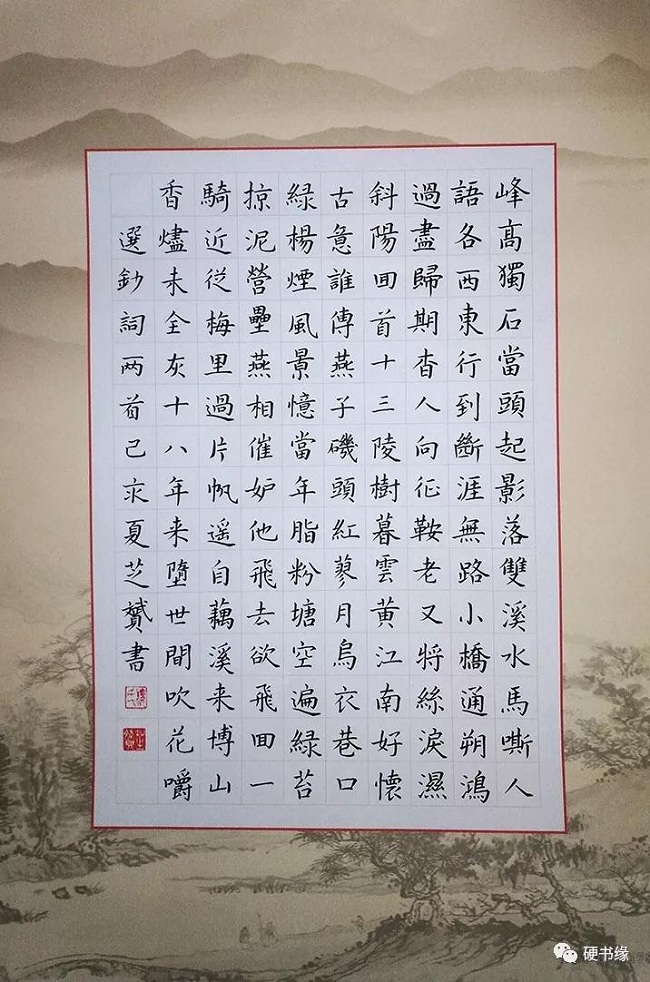 峰高獨石當頭起影落雙溪水馬嘶人
語各西東行到斷涯無路小橋通朔鴻
過盡歸期杳人向征鞍老又將絲淚濕
斜陽囬首十三陵樹暮雲黃江南好懷
古意誰傳燕子磯頭紅蓼月烏衣巷口
綠楊煙風景憶當年脂粉塘空遍綠苔
掠泥營壘燕相催妒他飛去欲飛囬一
騎近從梅里過片帆遥自藕溪来博山
香燼未全灰十八年来墮世間吹花嚼
選鈔詞两首己亥夏芝贇書
硬书缘